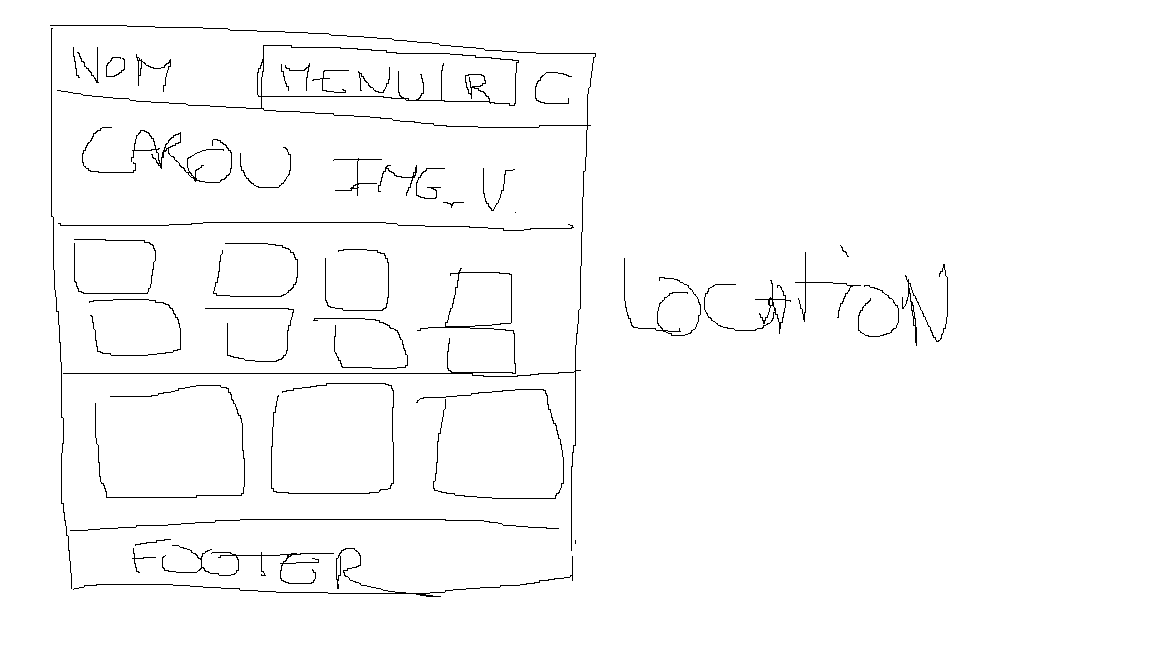 NOM MENU R C
CAROU IMG_V
LOCATION
FOOTER